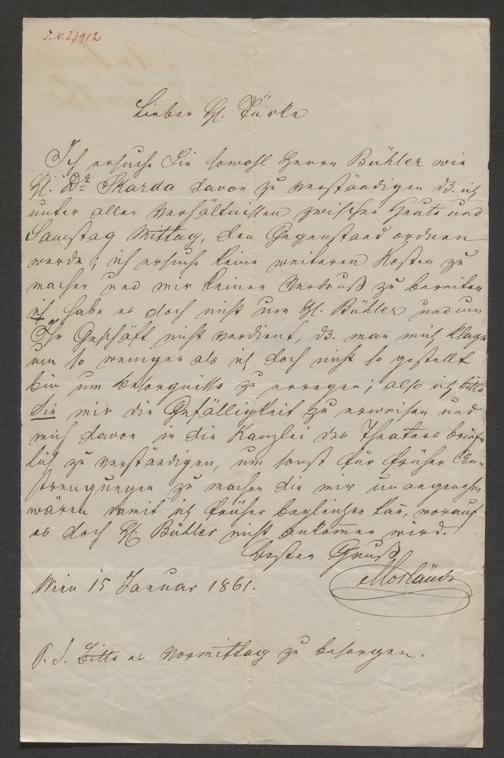 I.N. 27912
Lieber H. Türke
Ich ersuche Sie sowohl Herrn Bühler wie
H. Dr Skarda davon zu verständigen dß. ich
unter allen Verhältnissen zwischen heute und
Samstag Mittag, den Gegenstand ordnen
werde; ich ersuche keine weiteren Kosten zu
machen und mir keinen Verdruß zu bereiten
ich habe es doch nicht um H. Bühler und um
Ihr Geschäft nicht verdient, dß. man mich klage
um so weniger als ich doch nicht so gestellt
bin um besorgnisse zu erregen; also ich bitte
Sie mir die Gefälligkeit zu erweisen und
mich davon in die Kanzlei des Theaters brief-
lich zu verständigen, um sonst für früher An-
strengungen zu machen die mir unangenehm
wären damit ich früher, worauf
es doch H. Bühler nicht ankommen wird.
besten Gruß
Wien 15 Januar 1861.
P. S. Bitte es Vormittag zu besorgen.